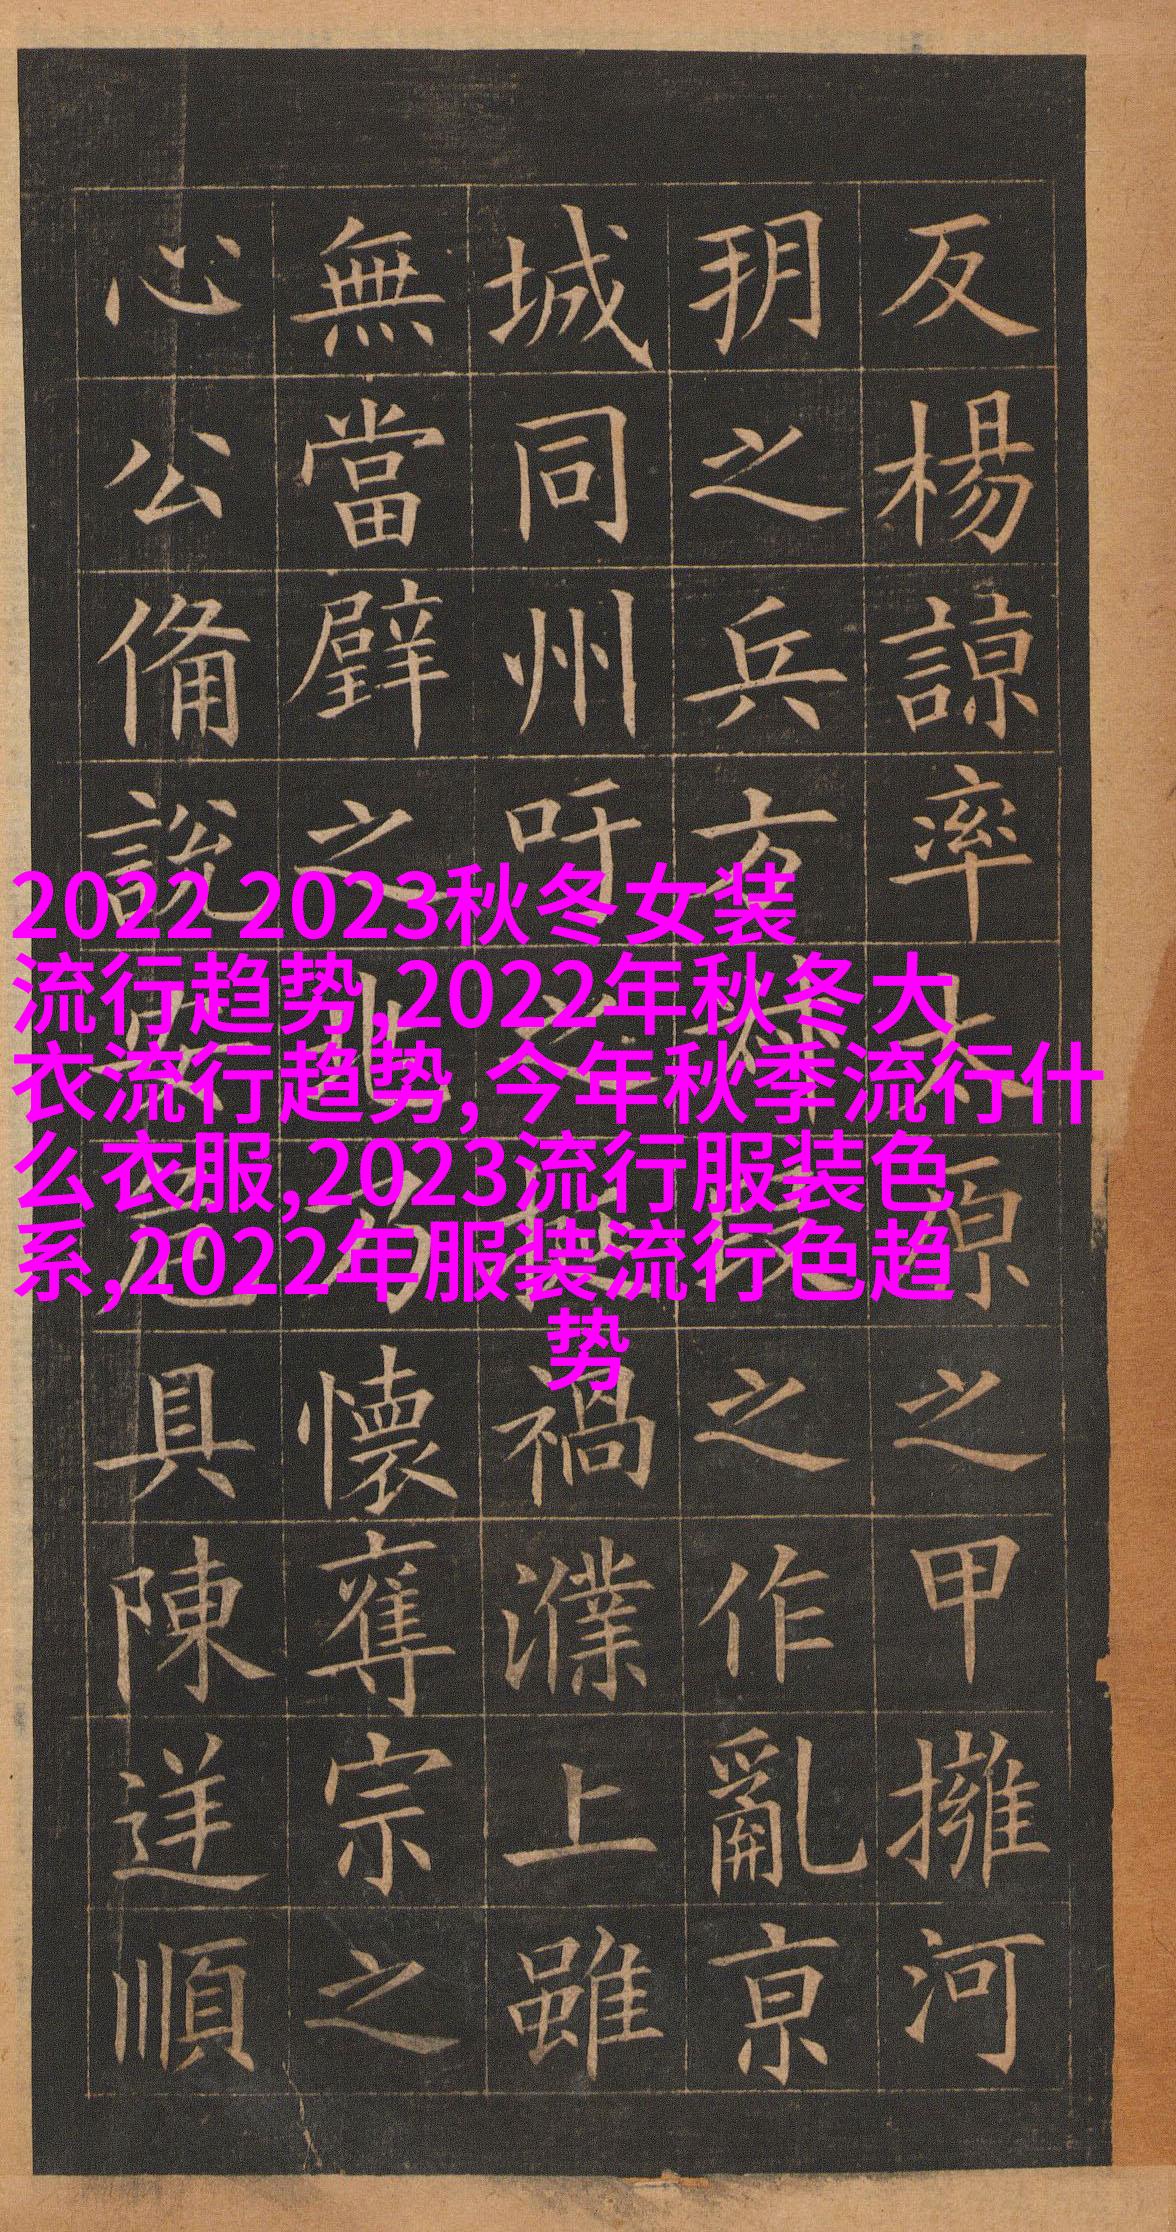 反楊諒率太原之甲擁河
朔之兵方叔之作亂亰
城同州吁之禍濮上雖
無當璧之兆乃懷奪宗之
心公俻說危具陳逆順
2022 2023秋冬女装
流行趋势,2022年秋冬大
衣流行趋势,今年秋季流行什
么衣服,2023流行服装色
系,2022年服装流行色趋
势